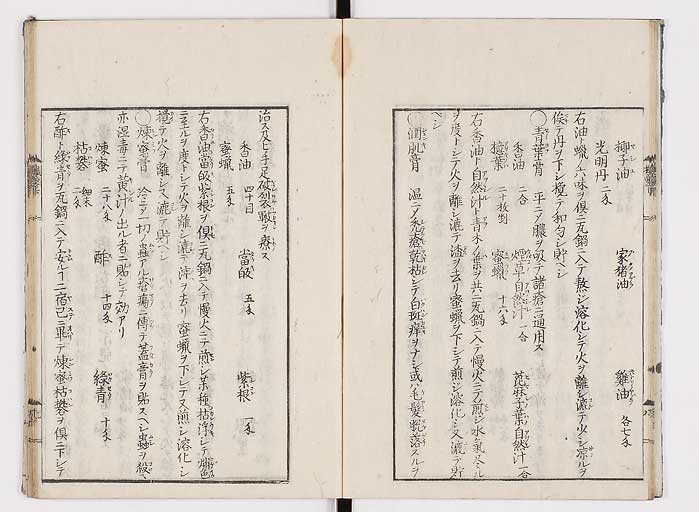 椰子油　家猪油　雞油 各七匁
光明丹 二匁
右油ト蝋ノ六味ヲ俱ニ瓦鍋ニ入テ熬シ溶化シテ火ヲ離シ漉テ少シ凉ルヲ
俟テ丹ヲ下シ攪テ和匀シ貯ベシ
〇青葉膏　平ニノ膿ヲ吸テ諸瘡ニ通用ス
香油 二合　煙草自然汁 一合　蓖麻子葉自然汁 一合
二十枚　蜜蝋 十六匁
右香油ト自然汁ト青木ノ葉ヲ共ニ瓦鍋ニ入テ慢火ニテ煎シ水氣尽ル
ヲ度トシテ火ヲ離シ漉テ渣ヲ去リ蜜蝋ヲ下シテ煎シ溶化シ又漉テ貯
ベシ
〇潤肌膏　温ニノ禿瘡乾枯シテ白斑痒ヲナシ或ハ毛髮乾落スルヲ
治ス及ヒ手足破裂皸ヲ療ス
香油 四十目　當皈 五匁　紫根 一匁
蜜蝋 五匁
右香油當皈紫根ヲ俱ニ瓦鍋ニ入テ慢火ニテ煎シ藥種枯浮シテ色
ニ至ルヲ度トシテ火ヲ離シ漉テ滓ヲ去リ蜜蝋ヲ下シテ又煎シ溶化シ
攪テ火ヲ離シ漉テ貯ベシ
〇煉蜜膏　冷ニノ一切ノ蟲アル瘡瘍ニ傅テ蓋膏ヲ貼スベシ蟲ヲ殺ス
亦湿毒ニテ黄汁ノ出ル者ニ貼シテ効アリ
煉蜜 二十八匁　酢 十四匁　綠青 十匁
枯礬 細末 二匁
右酢ト綠青ヲ瓦鍋ニ入テ安ルヿ二宿已ニ畢テ煉蜜枯礬ヲ俱ニ下シテ